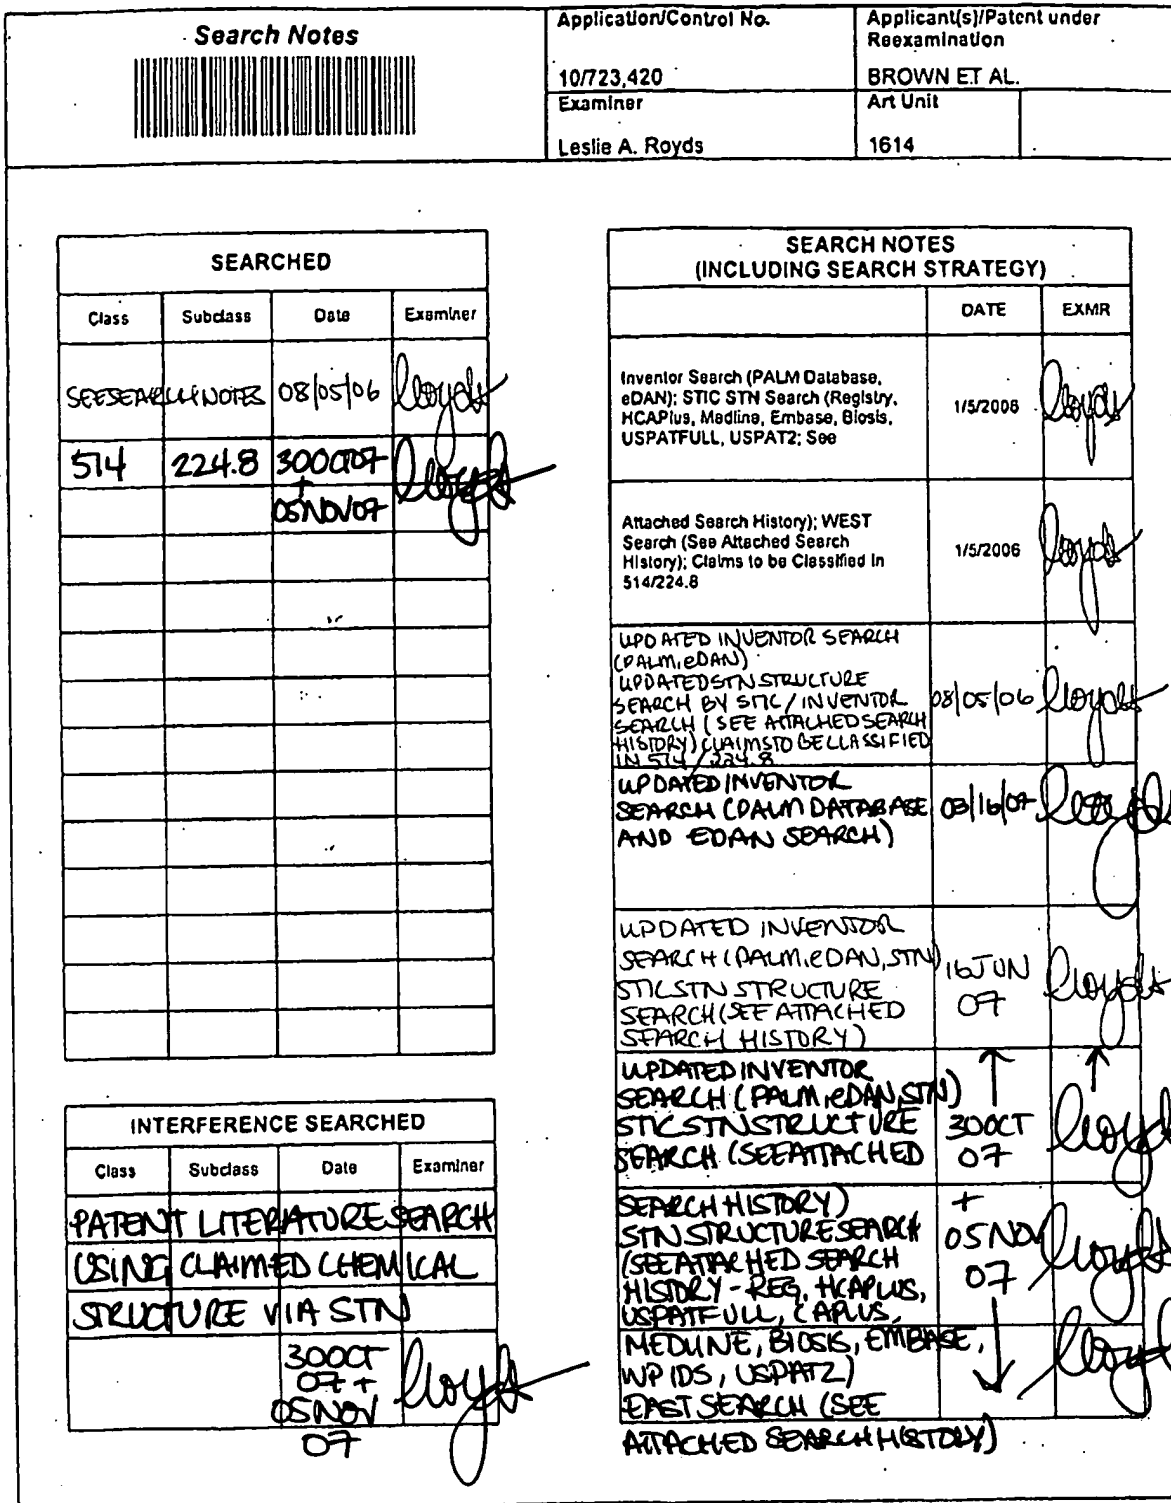 Search Notes
Application/Control No.
10/723,420
Applicant(s)/Patent under
Reexamination
BROWN ET AL.
Examiner
Leslie A. Royds
Art Unit
1614
SEARCHED
Class Subclass Date Examiner
SEE SEARCH NOTES 08/05/06
514 224.8 30OCT07
+
05NOV07
INTERFERENCE SEARCHED
Class Subclass Date Examiner
PATENT LITERATURE SEARCH
USING CLAIMED CHEMICAL
STRUCTURE VIA STN
30OCT
07 +
05NOV
07
SEARCH NOTES
(INCLUDING SEARCH STRATEGY)
DATE EXMR
Inventor Search (PALM Database,
eDAN); STIC STN Search (Registry,
HCAPlus, Medline, Embase, Biosis,
USPATFULL, USPAT2; See
1/5/2006
Attached Search History); WEST
Search (See Attached Search
History); Claims to be Classified in
514/224.8
1/5/2006
UPDATED INVENTOR SEARCH
(PALM, eDAN)
UPDATED STN STRUCTURE
SEARCH BY STIC / INVENTOR
SEARCH (SEE ATTACHED SEARCH
HISTORY) CLAIMS TO BE CLASSIFIED
IN 514/224.8
08/05/06
UPDATED INVENTOR
SEARCH (PALM DATABASE
AND EDAN SEARCH)
03/16/07
UPDATED INVENTOR
SEARCH (PALM, eDAN, STN)
STIC STN STRUCTURE
SEARCH (SEE ATTACHED
SEARCH HISTORY)
16JUN
07
UPDATED INVENTOR
SEARCH (PALM, eDAN, STN)
STIC STN STRUCTURE
SEARCH (SEE ATTACHED
30OCT
07
SEARCH HISTORY)
STN STRUCTURE SEARCH
(SEE ATTACHED SEARCH
HISTORY - REG, HCAPLUS,
USPATFULL, CAPLUS,
+
05NOV
07
MEDLINE, BIOSIS, EMBASE,
WPIDS, USPAT2)
EAST SEARCH (SEE
ATTACHED SEARCH HISTORY)